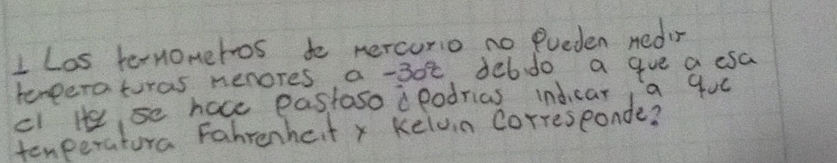 1 Los termometros de mercurio no Pueden medir
temperaturas menores a -30°c debido a que a esa
el Hg, se hace pastaso ¿podrias indicar a que
temperatura Fahrenheit y Kelvin Corresponde?